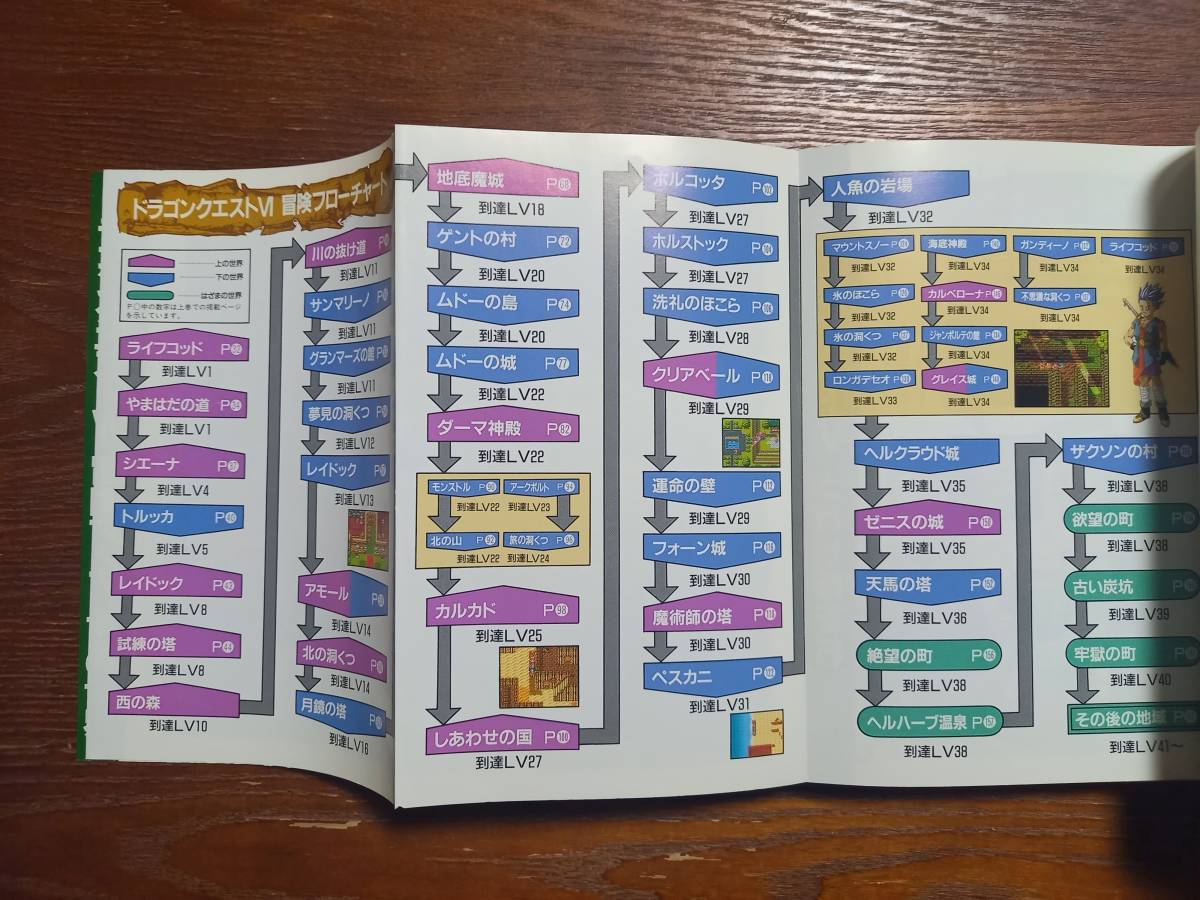 ドラゴンクエストVI 冒険フローチャート
上の世界
下の世界
はざまの世界
P○中の数字は上巻での掲載ページ
を示しています。
ライフコッド
到達LV1
やまはだの道
到達LV1
シエーナ
到達LV4
トルッカ
到達LV5
レイドック
到達LV8
試練の塔 P44
到達LV8
西の森
到達LV10
川の抜け道
到達LV11
サンマリーノ
到達LV11
グランマーズの館
到達LV11
夢見の洞くつ
到達LV12
レイドック
到達LV13
アモール
到達LV14
北の洞くつ
到達LV14
月鏡の塔
到達LV16
地底魔城 P68
到達LV18
ゲントの村 P72
到達LV20
ムドーの島 P74
到達LV20
ムドーの城 P77
到達LV22
ダーマ神殿 P82
到達LV22
モンストル
到達LV22
北の山
到達LV22
アークボルト
到達LV23
旅の洞くつ
到達LV24
カルカド P98
到達LV25
しあわせの国 P100
到達LV27
ホルコッタ
到達LV27
ホルストック
到達LV27
洗礼のほこら
到達LV28
クリアベール
到達LV29
運命の壁 P112
到達LV29
フォーン城
到達LV30
魔術師の塔
到達LV30
ペスカニ
到達LV31
人魚の岩場
到達LV32
マウントスノー
到達LV32
氷のほこら
到達LV32
氷の洞くつ
到達LV32
ロンガデセオ
到達LV33
海底神殿
到達LV34
カルベローナ
到達LV34
ジャンポルテの館
到達LV34
グレイス城
到達LV34
ガンディーノ
到達LV34
不思議な洞くつ
到達LV34
ライフコッド
到達LV34
ヘルクラウド城
到達LV35
ゼニスの城 P150
到達LV35
天馬の塔 P152
到達LV36
絶望の町 P156
到達LV38
ヘルハーブ温泉 P157
到達LV38
ザクソンの村
到達LV38
欲望の町
到達LV38
古い炭坑
到達LV39
牢獄の町
到達LV40
その後の地域
到達LV41～